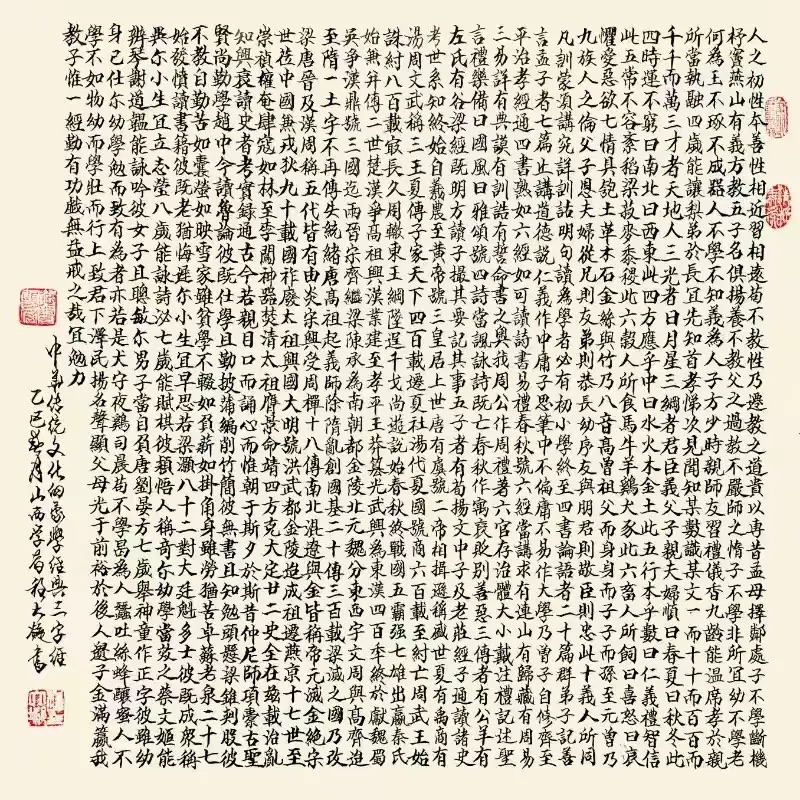 人之初性本善性相近習相遠苟不教性乃遷教之道貴以專昔孟母擇鄰處子不學斷機
杼竇燕山有義方教五子名俱揚養不教父之過教不嚴師之惰子不學非所宜幼不學老
何為玉不琢不成器人不學不知義為人子方少時親師友習禮儀香九齡能溫席孝於親
所當執融四歲能讓梨弟於長宜先知首孝悌次見聞知某數識某文一而十十而百百而
千千而萬三才者天地人三光者日月星三綱者君臣義父子親夫婦順曰春夏曰秋冬此
四時運不窮曰南北曰西東此四方應乎中曰水火木金土此五行本乎數曰仁義禮智信
此五常不容紊稻粱菽麥黍稷此六穀人所食馬牛羊雞犬豕此六畜人所飼曰喜怒曰哀
懼愛惡欲七情具匏土革木石金絲與竹乃八音高曾祖父而身身而子子而孫至元曾乃
九族人之倫父子恩夫婦從兄則友弟則恭長幼序友與朋君則敬臣則忠此十義人所同
凡訓蒙須講究詳訓詁明句讀為學者必有初小學終至四書論語者二十篇群弟子記善
言孟子者七篇止講道德說仁義作中庸子思筆中不偏庸不易作大學乃曾子自修齊至
平治孝經通四書熟如六經如可讀詩書易禮春秋號六經當講求有連山有歸藏有周易
三易詳有典謨有訓誥有誓命書之奧我周公作周禮著六官存治體大小戴注禮記述聖
言禮樂備曰國風曰雅頌號四詩當諷詠詩既亡春秋作寓褒貶別善惡三傳者有公羊有
左氏有谷梁經既明方讀子撮其要記其事五子者有荀揚文中子及老莊經子通讀諸史
考世系知終始自羲農至黃帝號三皇居上世唐有虞號二帝相揖遜稱盛世夏有禹商有
湯周文武稱三王夏傳子家天下四百載遷夏社湯伐夏國號商六百載至紂亡周武王始
誅紂八百載最長久周轍東王綱墜逞干戈尚遊說始春秋終戰國五霸强七雄出嬴秦氏
始兼并傳二世楚漢爭高祖興漢業建至孝平王莽篡光武興為東漢四百年終於獻魏蜀
吳爭漢鼎號三國迄兩晉宋齊繼梁陳承為南朝都金陵北元魏分東西宇文周與高齊迨
至隋一土宇不再傳失統緒唐高祖起義師除隋亂創國基二十傳三百載梁滅之國乃改
梁唐晉及漢周稱五代皆有由炎宋興受周禪十八傳南北混遼與金皆稱帝元滅金絕宋
世莅中國兼戎狄九十載國祚廢太祖興國大明號洪武都金陵迨成祖遷燕京十七世至
崇禎權奄肆寇如林至李闖神器焚清太祖膺景命靖四方克大定廿二史全在茲載治亂
知興衰讀史者考實錄通古今若親目口而誦心而惟朝于斯夕於斯昔仲尼師項橐古聖
賢尚勤學趙中令讀魯論彼既仕學且勤披蒲編削竹簡彼無書且知勉頭懸梁錐刺股彼
不教自勤苦如囊螢如映雪家雖貧學不輟如負薪如掛角身雖勞猶苦卓蘇老泉二十七
始發憤讀書籍彼既老猶悔遲尔小生宜早思若梁灝八十二對大廷魁多士彼既成眾稱
異尔小生宜立志瑩八歲能詠詩泌七歲能賦棋彼穎悟人稱奇尔幼學當效之蔡文姬能
辨琴謝道韞能詠吟彼女子且聰敏尔男子當自儆唐劉晏方七歲舉神童作正字彼雖幼
身已仕尔幼學勉而致有為者亦若是犬守夜鷄司晨苟不學曷為人蠶吐絲蜂釀蜜人不
學不如物幼而學壯而行上致君下澤民揚名聲顯父母光于前裕於後人遺子金滿籯我
教子惟一經勤有功戲無益戒之哉宜勉力
中華傳統文化的蒙學經典三字經
乙巳月山西學者程大書